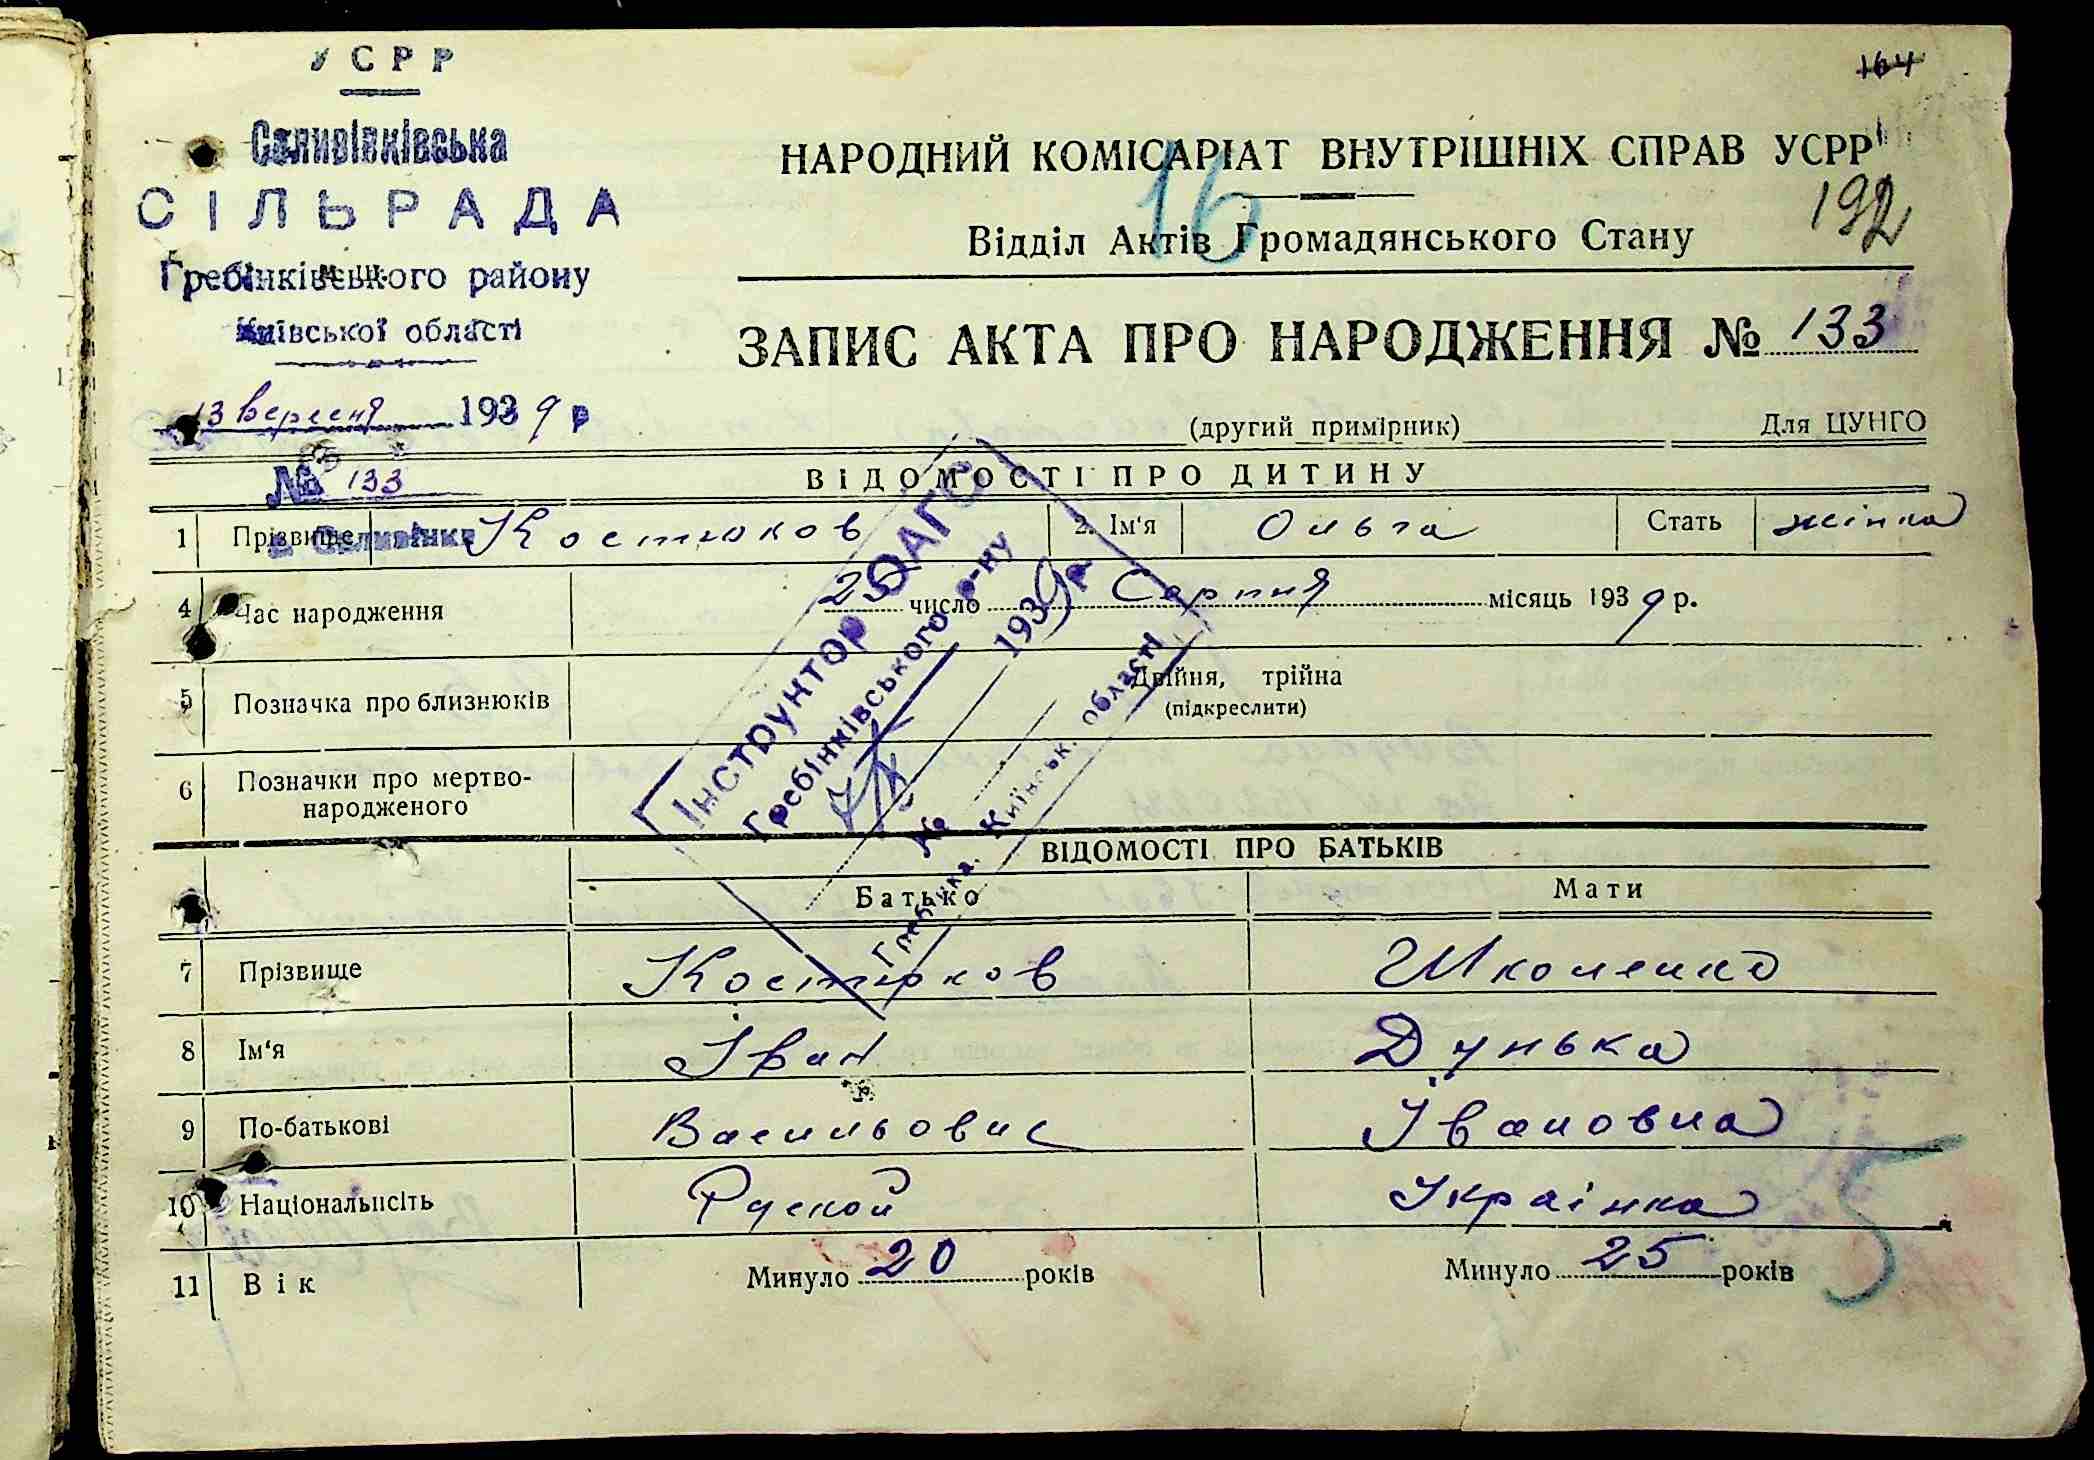 УСРР
Саливінківська
СІЛЬРАДА
Гребінківського району
Київської області
13 вересня 1939 р
№ 133
с. Саливінки
164
НАРОДНИЙ КОМІСАРІАТ ВНУТРІШНІХ СПРАВ УСРР
16
192
Відділ Актів Громадянського Стану
ЗАПИС АКТА ПРО НАРОДЖЕННЯ № 133
(другий примірник) Для ЦУНГО
ВІДОМОСТІ ПРО ДИТИНУ
1 Прізвище Костюков 2. Ім'я Ольга Стать жінка
4 Час народження 25 число Серпня місяць 1939 р.
5 Позначка про близнюків Двійня, трійна
(підкреслити)
6 Позначки про мертво-
народженого
Інструктор ОАГС
Гребінківського р-ну
7/X 1939 р.
№
Гребінка, Київськ. області
ВІДОМОСТІ ПРО БАТЬКІВ
Батько Мати
7 Прізвище Костюков Школенко
8 Ім'я Іван Дунька
9 По-батькові Васильович Івановна
10 Національність Руской Украінка
11 Вік Минуло 20 років Минуло 25 років
5